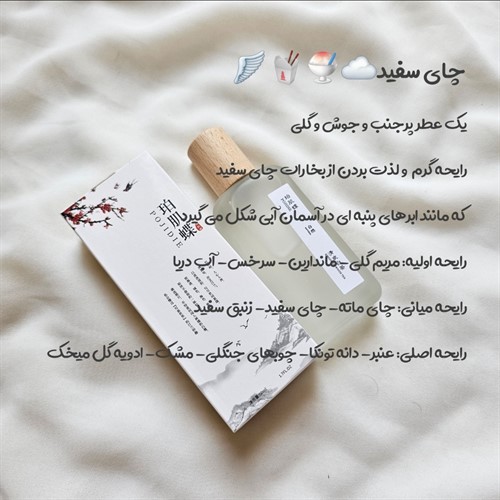 چای سفید☁️🍧🥡🪽
یک عطر پرجنب و جوش و گلی
رایحه گرم و لذت بردن از بخارات چای سفید
که مانند ابرهای پنبه ای در آسمان آبی شکل می گیرد
رایحه اولیه: مریم گلی- ماندارین- سرخس- آب دریا
رایحه میانی: چای ماته- چای سفید- زنبق سفید
رایحه اصلی: عنبر- دانه تونکا- چوبهای جنگلی- مشک- ادویه گل میخک
珀肌蝶
POJIDIE